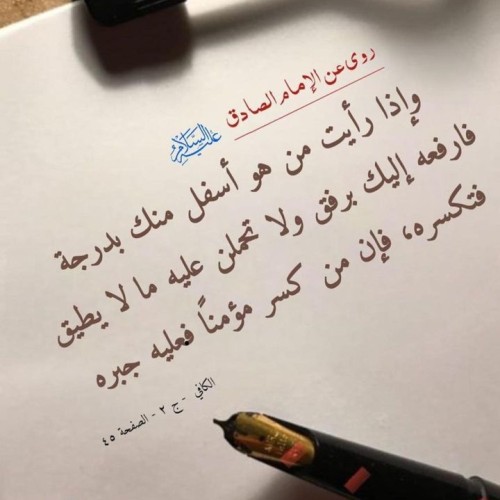 روى عن الإمام الصادق
عليه السلام
وإذا رأيت من هو أسفل منك بدرجة
فارفعه إليك برفق ولا تحملن عليه ما لا يطيق
فتكسره، فإن من كسر مؤمناً فعليه جبره
الكافي - ج ٢ - الصفحة ٤٥